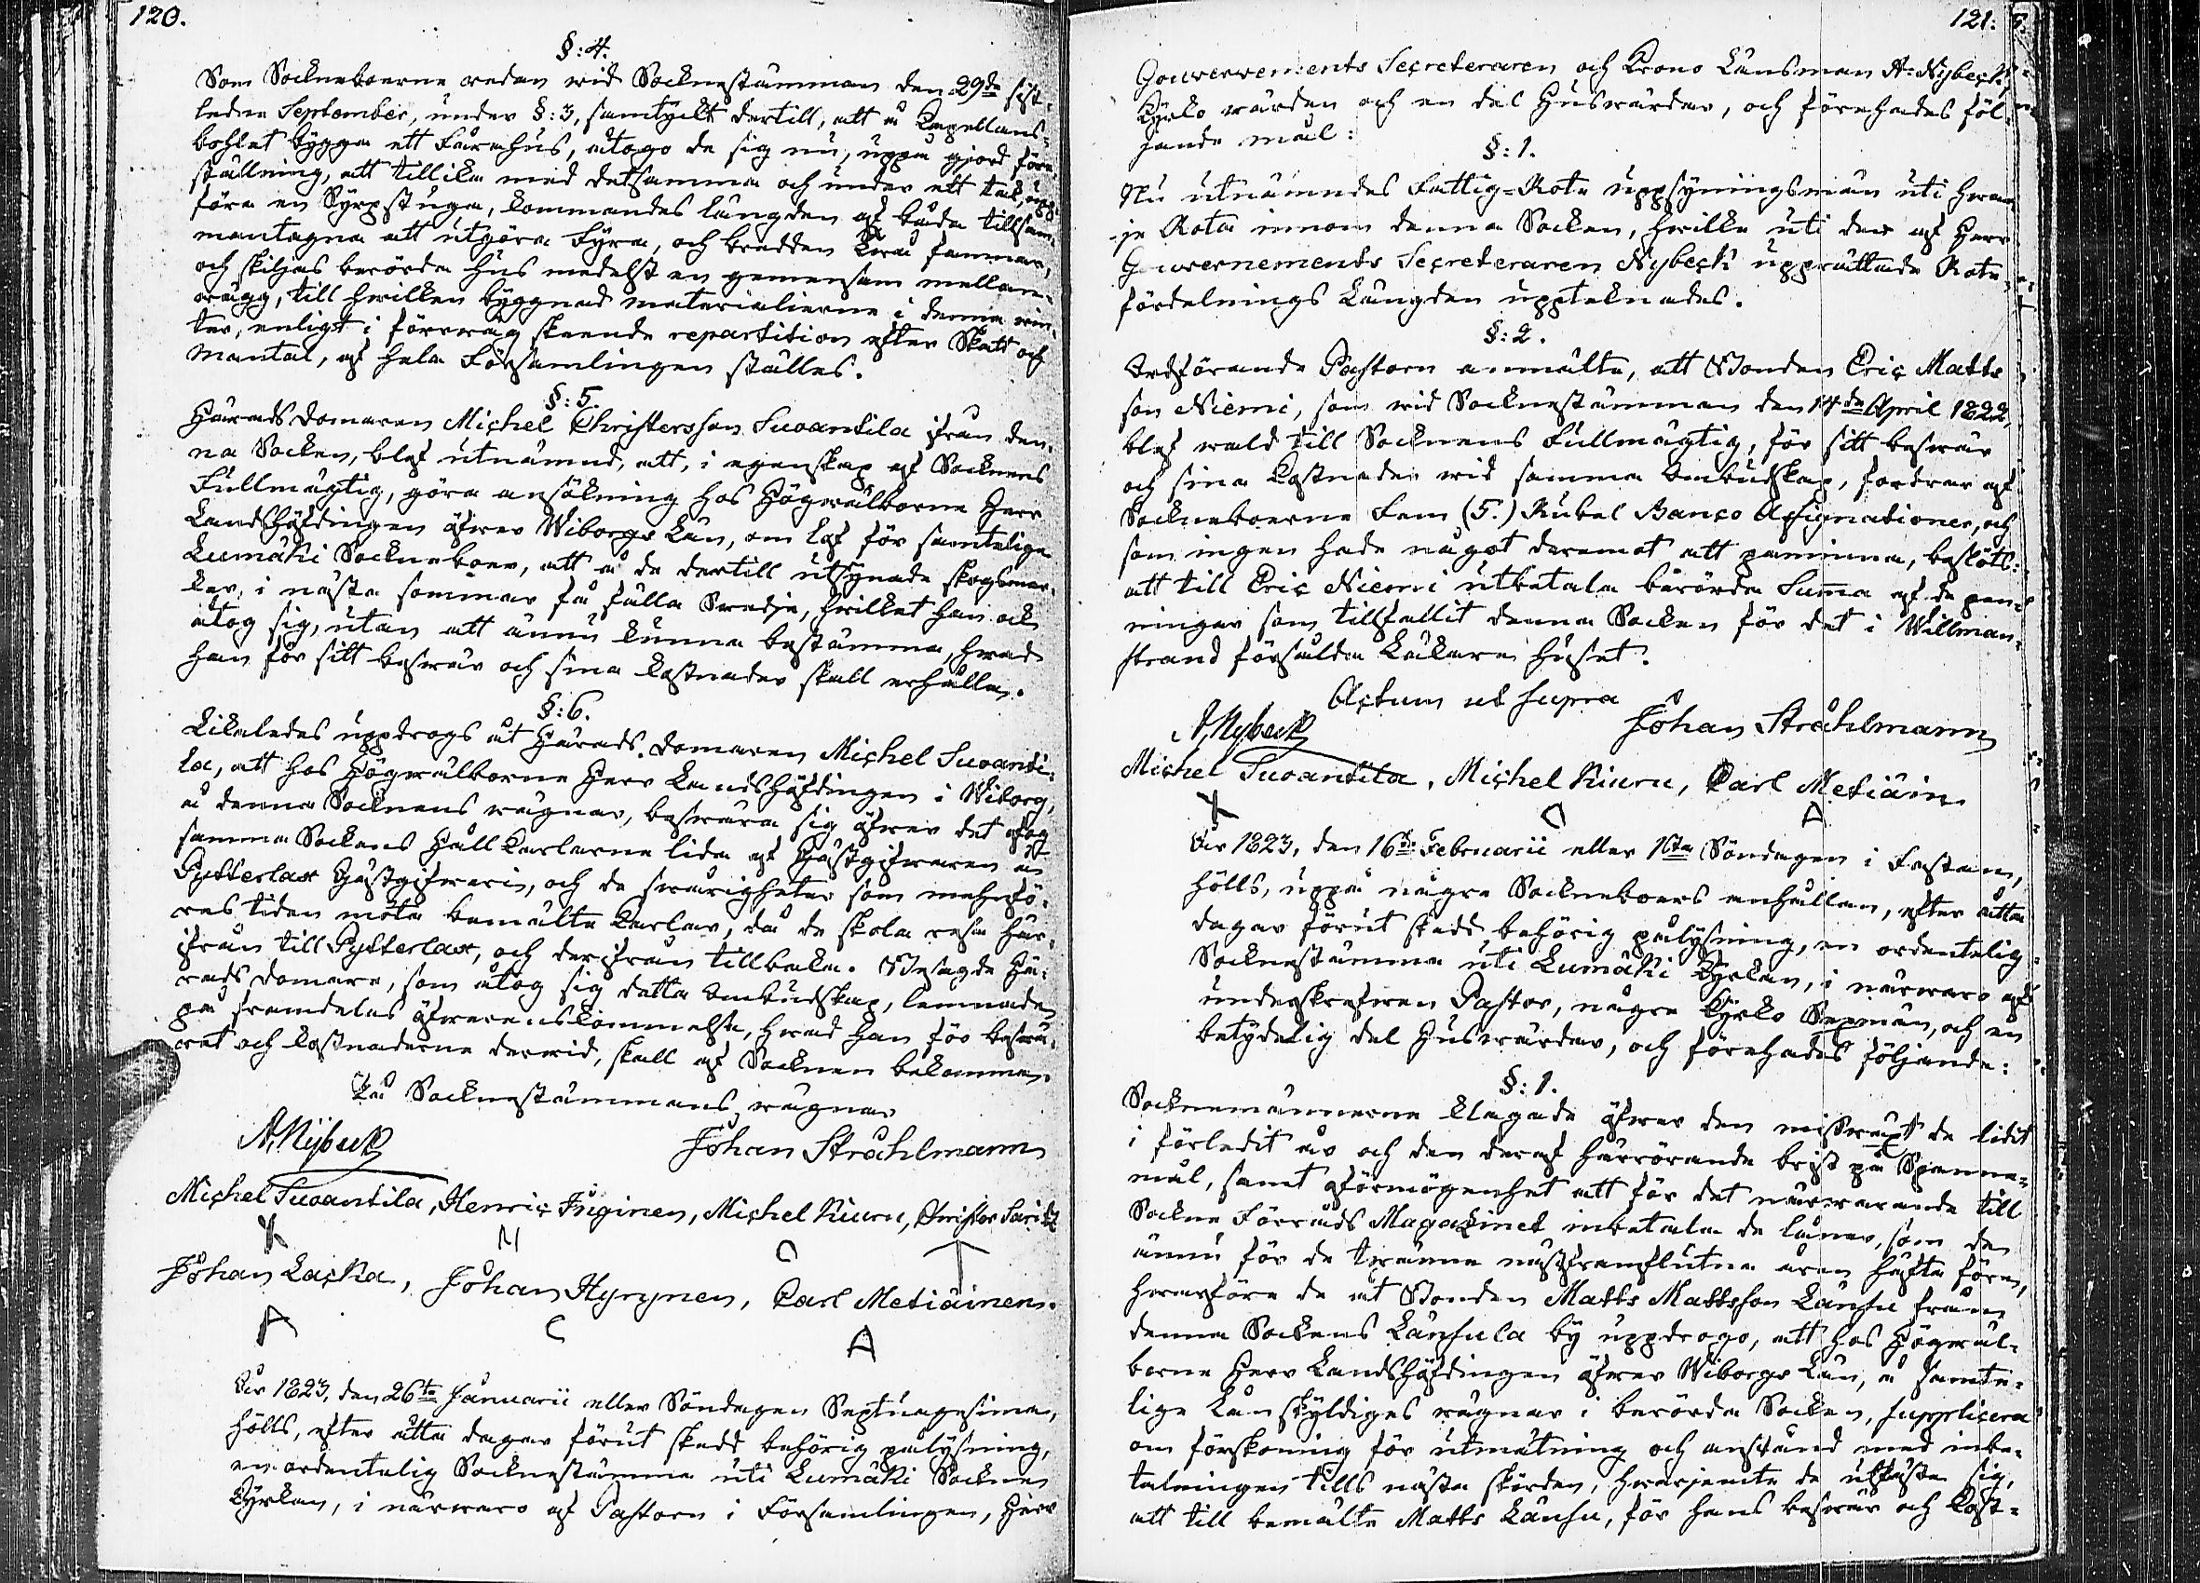 120.
§: 4.
Som Sockneboerne redan wid Socknestämman den 29de sist-
ledne September, under §: 3, samtyckt dertill, att å Capellans-
bohlet bygga ett Fårahus, åtogo de sig nu, uppå gjord före-
ställning, att tillika med detsamma och under ett tak, upp-
föra en Syrpstuga, kommandes längden af båda tillsam-
mantagna att utgöra Fyra, och bredden Twå famnar,
och skiljas berörda hus medelst en gemensam mellan-
wägg, till hwilken byggnad materialierne i denna win-
ter, enligt i förewäg skeende repartition efter Skatt och
Mantal, af hela Församlingen ställes.
§: 5.
Härads Domaren Michel Christersson Suoantila ifrån den-
na Socken, blef utnämnd, att, i egenskap af Socknens
Fullmägtig, göra ansökning hos Högwälborne Herr
Landshöfdingen öfwer Wiborgs Län, om lof för samtelige
Lumäki Socknboer, att å de dertill utsynade skogsmar-
ker, i nästa sommar få fälla Swedje, hwilket han ock
åtog sig, utan att ännu kunna bestämma, hwad
han för sitt beswär och sina kostnader skall erhålla.
§: 6.
Likaledes uppdrogs åt Härads-Domaren Michel Suoanti-
la, att hos Högwälborne Herr Landshöfdingen i Wiborg,
å denna Socknens wägnar, beswära sig öfwer det ofog
samma Sockens Hållkarlarne lida af Gästgifwaren å
Pytterlax Gästgifweri, och de swårigheter som mehnfö-
res tiden möta bemälte Karlar, då de skola resa här-
ifrån till Pytterlax, och derifrån tillbaka. Besagde Hä-
rads Domare, som åtog sig detta Ombudskap, lemnade
på framdeles öfwerenskommelse, hwad han för beswä-
ret och kostnaderne derwid, skall af Socknen bekomma.
På Socknestämmans wägnar
A. Nybeck Johan Stråhlmann
Michel Suoantila, Henric Inginen, Michel Kiuru, Christer
Johan Lacka, Johan Hyrynen, Carl Metiäinen.
År 1823, den 26te Januarii eller Söndagen Septuagesima,
hölls, efter åtta dagar förut skedd behörig pålysning,
en ordentelig Socknestämma uti Lumäki Socknes
Kyrkan, i närwaro af Pastorn i Församlingen, Herr
121.
Gouvernements Secreteraren och Krono Länsman A: Nybeck,
Kyrko wärden och en del Huswärdar, och förehades föl-
jande mål:
§: 1.
Nu utnämndes Fattig-Rote uppsyningsmän uti hwar-
je Rota innom denna Socken, hwilka uti den af Herr
Gouvernements Secreteraren Nybeck upprättade Rote-
fördelnings Längden upptaknades.
§: 2.
Ordförande Pastorn anmälte, att Bonden Eric Matts
son Niemi, som wid Socknestämman den 14de April 1822,
blef wald till Socknens Fullmägtig, för sitt beswär
och sina kostnader wid samma Ombudskap, fordrar af
Sockneboerne Fem (5.) Rubel Banco Assignationer, och
som ingen hade något deremot att påminna, beslöts:
att till Eric Niemi utbetala berörda Summa af de pen-
ningar som tillfallit denna Socken för det i Willman-
strand försålda Läkare huset.
Actum ut supra
A. Nybeck Johan Stråhlmann
Michel Suoantila, Michel Kiuru, Carl Metiäin
År 1823, den 16de Februarii eller 1sta Söndagen i Fastan,
hölls, uppå några Sockneboers anhållan, efter åtta
dagar förut skedd behörig pålysning, en ordentelig
Socknestämma uti Lumäki Kyrkan, i närwaro af
underskrefwen Pastor, några Kyrko Sexmän, och en
betydelig del Huswärdar, och förehades följande:
§: 1.
Socknemännerne klagade öfwer den misswäxt de lidit
i förledit år och den deraf härrörande brist på Spanne-
mål, samt oförmögenhet att för det närwarande till
Sockne Förråds Magazinet inbetala de låner, som de
ännu för de twänne näst framflutna åren häfta före,
hwarföre de åt Bonden Matts Mattsson Länsu från
denna Sockens Länsula by uppdrogo, att hos Högwäl-
borne Herr Landshöfdingen öfwer Wiborgs Län, å samte-
lige Lån skyldiges wägnar i berörda Socken, supplicera
om förskoning för utmätning och anstånd med inbe-
talningen tills nästa skörden, hwarjemte de utfäste sig,
att till bemälte Matts Länsu, för hans beswär och kost-